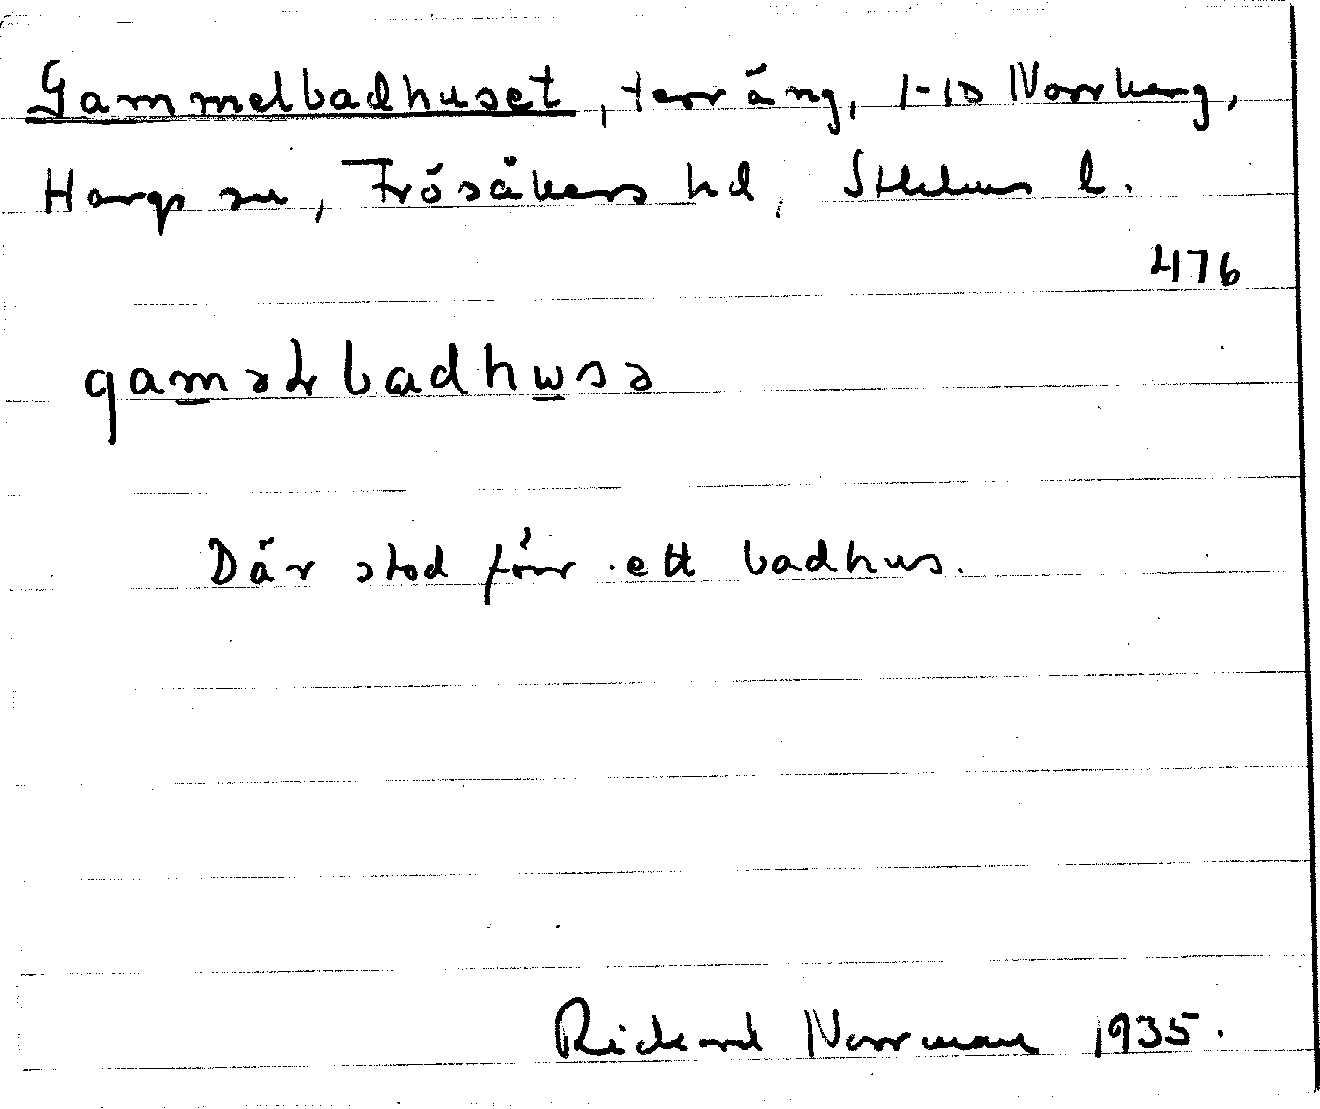 Gammelbadhuset, terräng, 1-10 Norrskog,
Hargs sn, Frösåkers hd, Sthlms l.
476
gaməlbadhusə
Där stod förr ett badhus.
Rickard Norrman 1935.